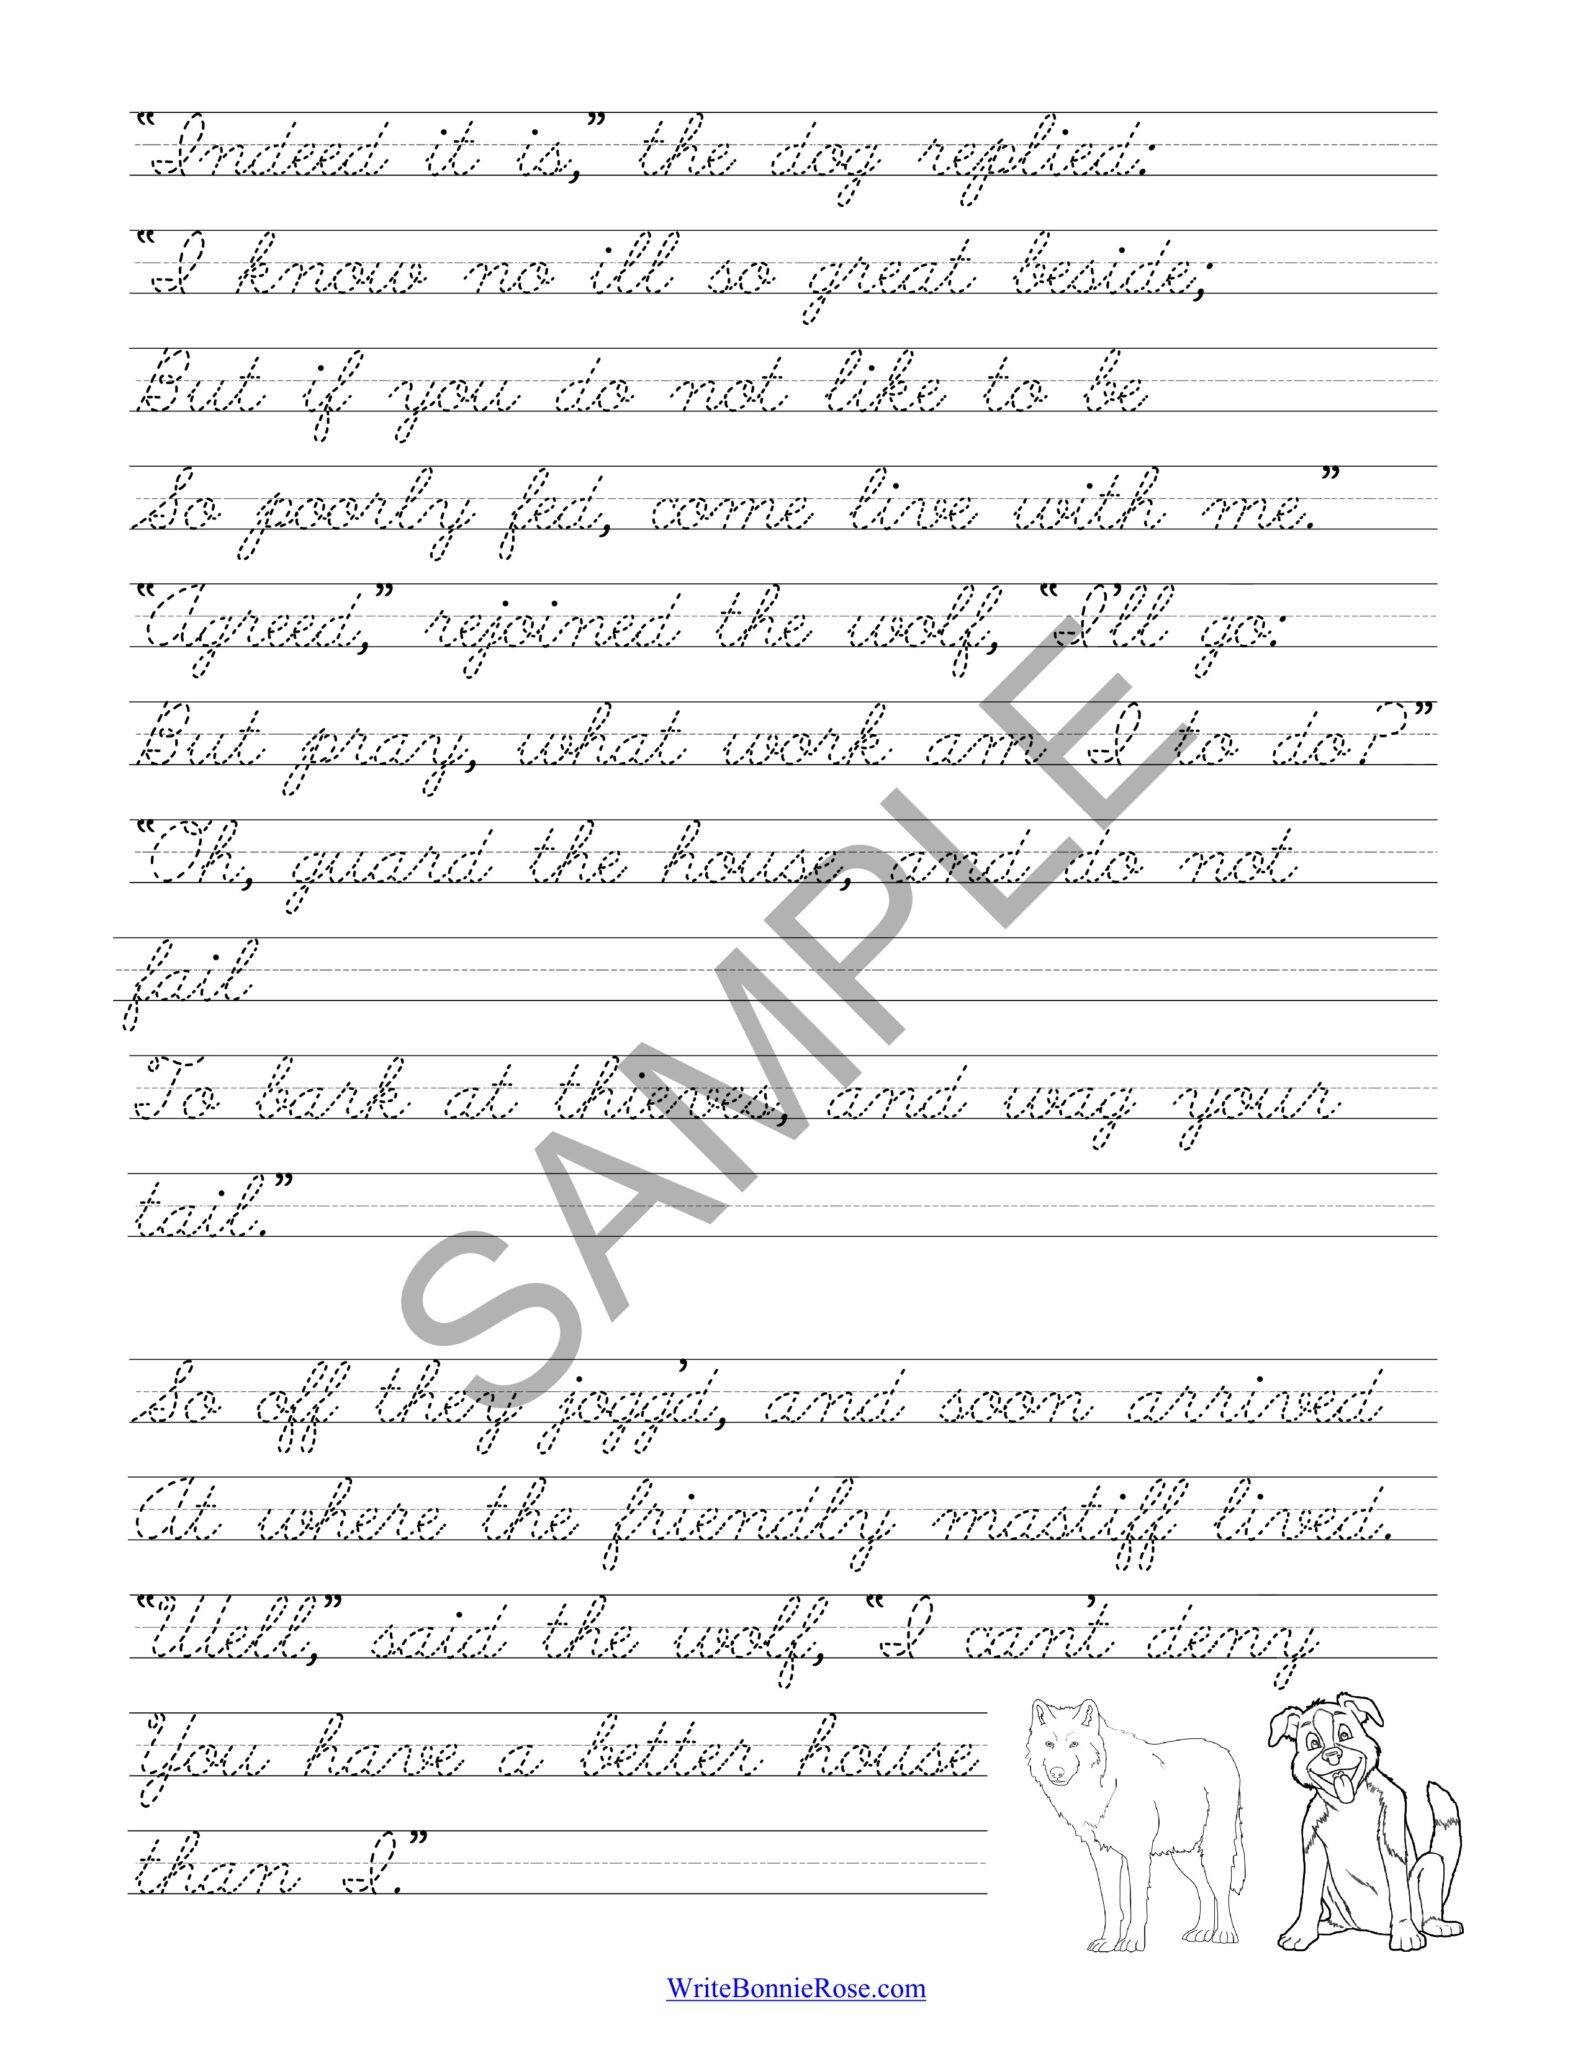 “Indeed it is,” the dog replied:
“I know no ill so great beside;
But if you do not like to be
So poorly fed, come live with me.”
“Agreed,” rejoined the wolf, “I’ll go:
But pray, what work am I to do?”
“Oh, guard the house, and do not
fail
To bark at thieves, and wag your
tail.”
So off they jogg’d, and soon arrived
At where the friendly mastiff lived.
“Well,” said the wolf, “I can’t deny
You have a better house
than I.”
SAMPLE
WriteBonnieRose.com